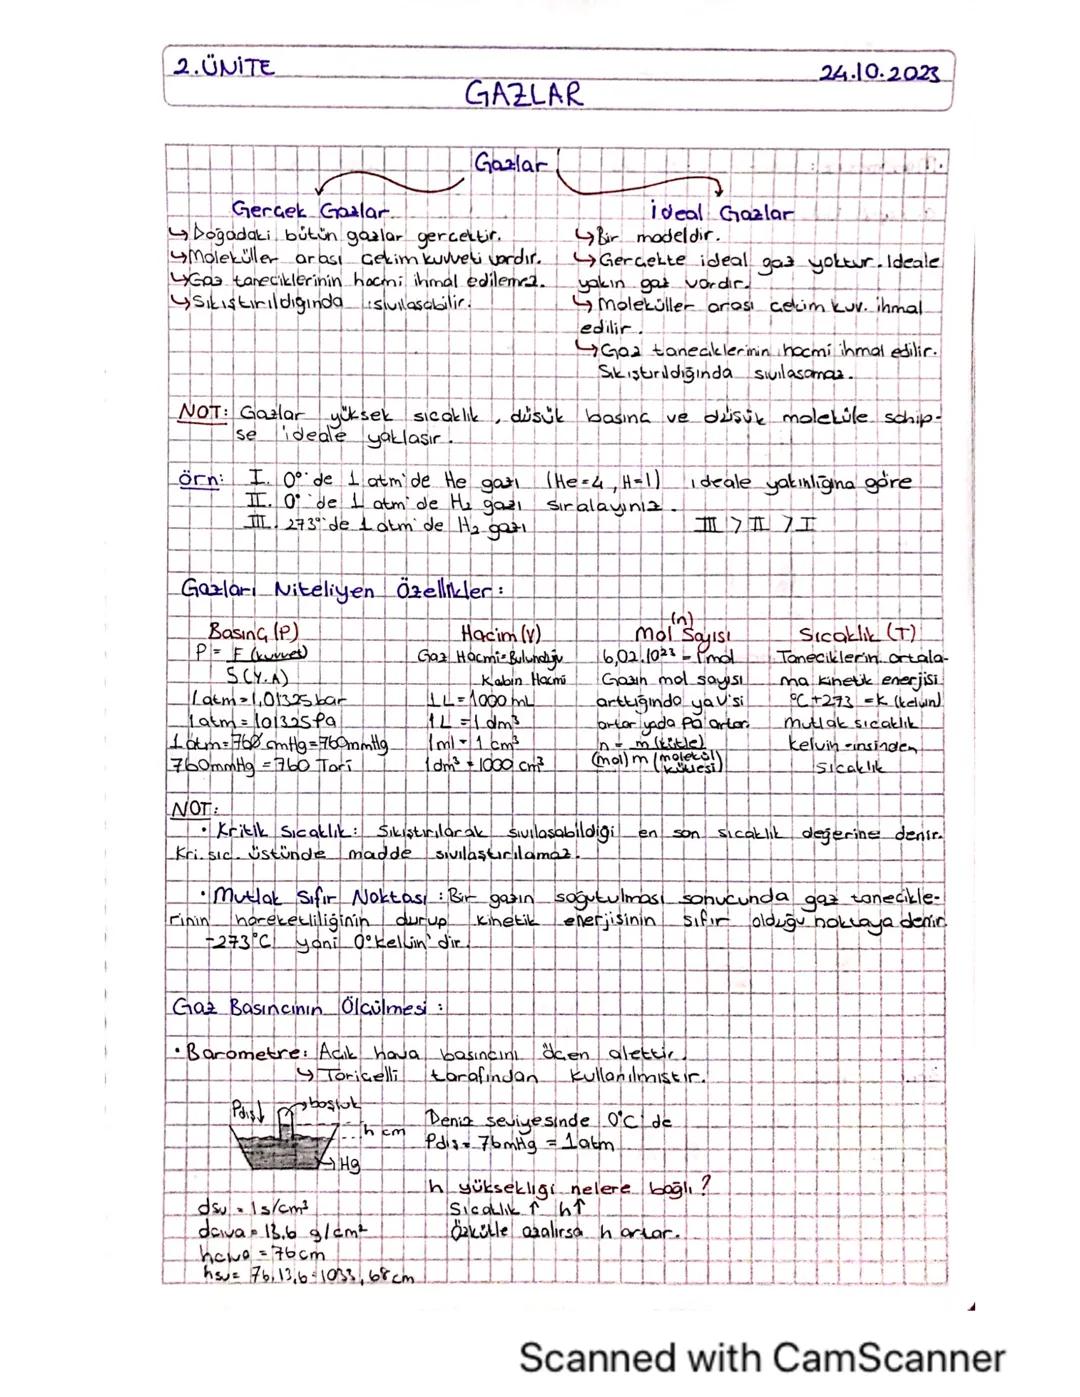 2.ÜNİTE
24.10.2023
GAZLAR
Gazlar
Gerçek Gazlar
↳Doğadaki bütün gazlar gerçektir.
↳Moleküller arası çekim kuvveti vardır.
↳Gaz taneciklerinin hacmi ihmal edilemez.
↳Sıkıştırıldığında sıvılaşabilir.
İdeal Gazlar
↳Bir modeldir.
↳Gerçekte ideal gaz yoktur. İdeale
yakın gaz vardır.
↳Moleküller arası çekim kuv. ihmal
edilir.
↳Gaz taneciklerinin hacmi ihmal edilir.
Sıkıştırıldığında sıvılaşamaz.
NOT: Gazlar yüksek sıcaklık, düşük basınç ve düşük moleküle sahip-
se ideale yaklaşır.
Örn: I. 0°'de 1 atm'de He gazı (He=4, H=1) ideale yakınlığına göre
II. 0°'de 1 atm'de H₂ gazı sıralayınız.
III. 273°'de 1 atm'de H₂ gazı III > II > I
Gazları Niteliyen Özellikler:
Basınç (P)
P = F (kuvvet)
S (Y.A)
1 atm = 1,01325 bar
1 atm = 101325 Pa
1 atm = 760 cmHg = 760mmHg
760mmHg = 760 Tori
Hacim (V)
Gaz Hacmi=Bulunduğu
Kabın Hacmi
1L = 1000 mL
1L = 1 dm³
1ml = 1 cm³
1dm³ = 1000 cm³
(n)
Mol Sayısı
6,02.10²³ = 1 mol
Gazın mol sayısı
arttığında ya V'si
artar yada Pa artar.
n = m (kütle)
(mol) m (molekül
kütlesi)
Sıcaklık (T)
Taneciklerin ortala-
ma kinetik enerjisi
°C+273 = K (kelvin)
mutlak sıcaklık
kelvin -insinden
sıcaklık
NOT:
• Kritik Sıcaklık: Sıkıştırılarak sıvılaşabildiği en son sıcaklık değerine denir.
Kri. sıc. üstünde madde sıvılaştırılamaz.
• Mutlak Sıfır Noktası: Bir gazın soğutulması sonucunda gaz tanecikle-
rinin hareketliliğinin durup kinetik enerjisinin sıfır olduğu noktaya denir.
-273°C yani 0° Kelvin'dir.
Gaz Basıncının Ölçülmesi:
• Barometre: Açık hava basıncını ölçen alettir.
↳ Toricelli tarafından kullanılmıştır.
Pdış↓
boşluk
h cm
Hg
Deniz seviyesinde 0°C'de
Pdış = 76mHg = 1 atm
h yüksekliği nelere bağlı?
Sıcaklık ↑ h↑
Özkütle azalırsa h artar.
dsu = 1s/cm³
dcıva = 13,6 g/cm²
hcıva = 76cm
hsu = 76.13,6=1033,68cm
Scanned with CamScanner